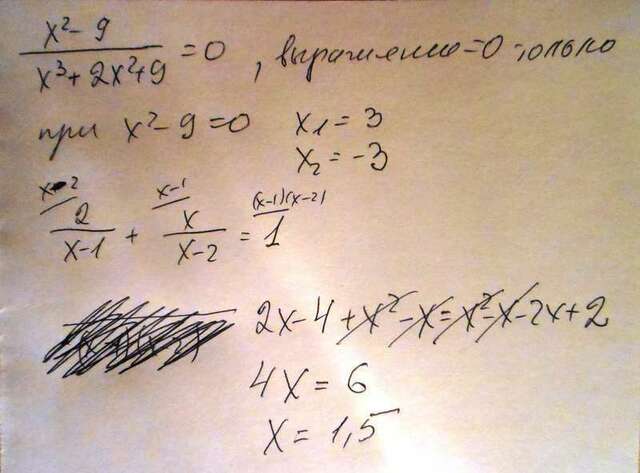 x² - 9 / x³ + 2x² + 9 = 0, выражение = 0 только
при x² - 9 = 0 x₁ = 3
x₂ = -3
x-2 x-1 (x-1)(x-2)
2 / x-1 + x / x-2 = 1
2x - 4 + x² - x = x² - x - 2x + 2
4x = 6
x = 1,5